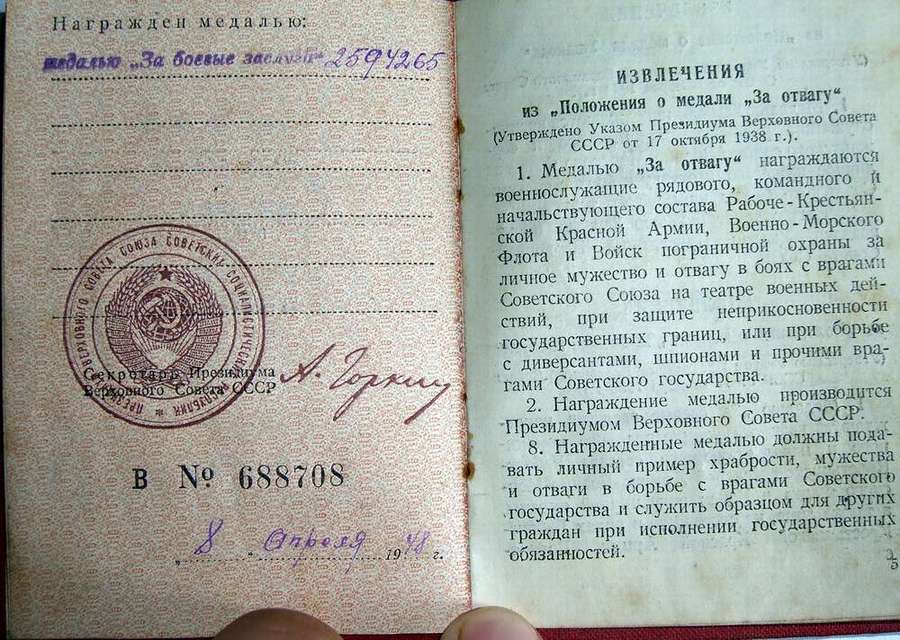 Награжден медалью:
медалью „За боевые заслуги" 2594265
ПРЕЗИДИУМ ВЕРХОВНОГО СОВЕТА СОЮЗА СОВЕТСКИХ СОЦИАЛИСТИЧЕСКИХ РЕСПУБЛИК
Секретарь Президиума
Верховного Совета СССР
А. Горкин
В № 688708
„ 8 " Апреля 1948 г.
ИЗВЛЕЧЕНИЯ
из „Положения о медали „За отвагу"
(Утверждено Указом Президиума Верховного Совета
СССР от 17 октября 1938 г.).
1. Медалью „За отвагу" награждаются
военнослужащие рядового, командного и
начальствующего состава Рабоче-Крестьян-
ской Красной Армии, Военно-Морского
Флота и Войск пограничной охраны за
личное мужество и отвагу в боях с врагами
Советского Союза на театре военных дей-
ствий, при защите неприкосновенности
государственных границ, или при борьбе
с диверсантами, шпионами и прочими вра-
гами Советского государства.
2. Награждение медалью производится
Президиумом Верховного Совета СССР.
8. Награжденные медалью должны пода-
вать личный пример храбрости, мужества
и отваги в борьбе с врагами Советского
государства и служить образцом для других
граждан при исполнении государственных
обязанностей.